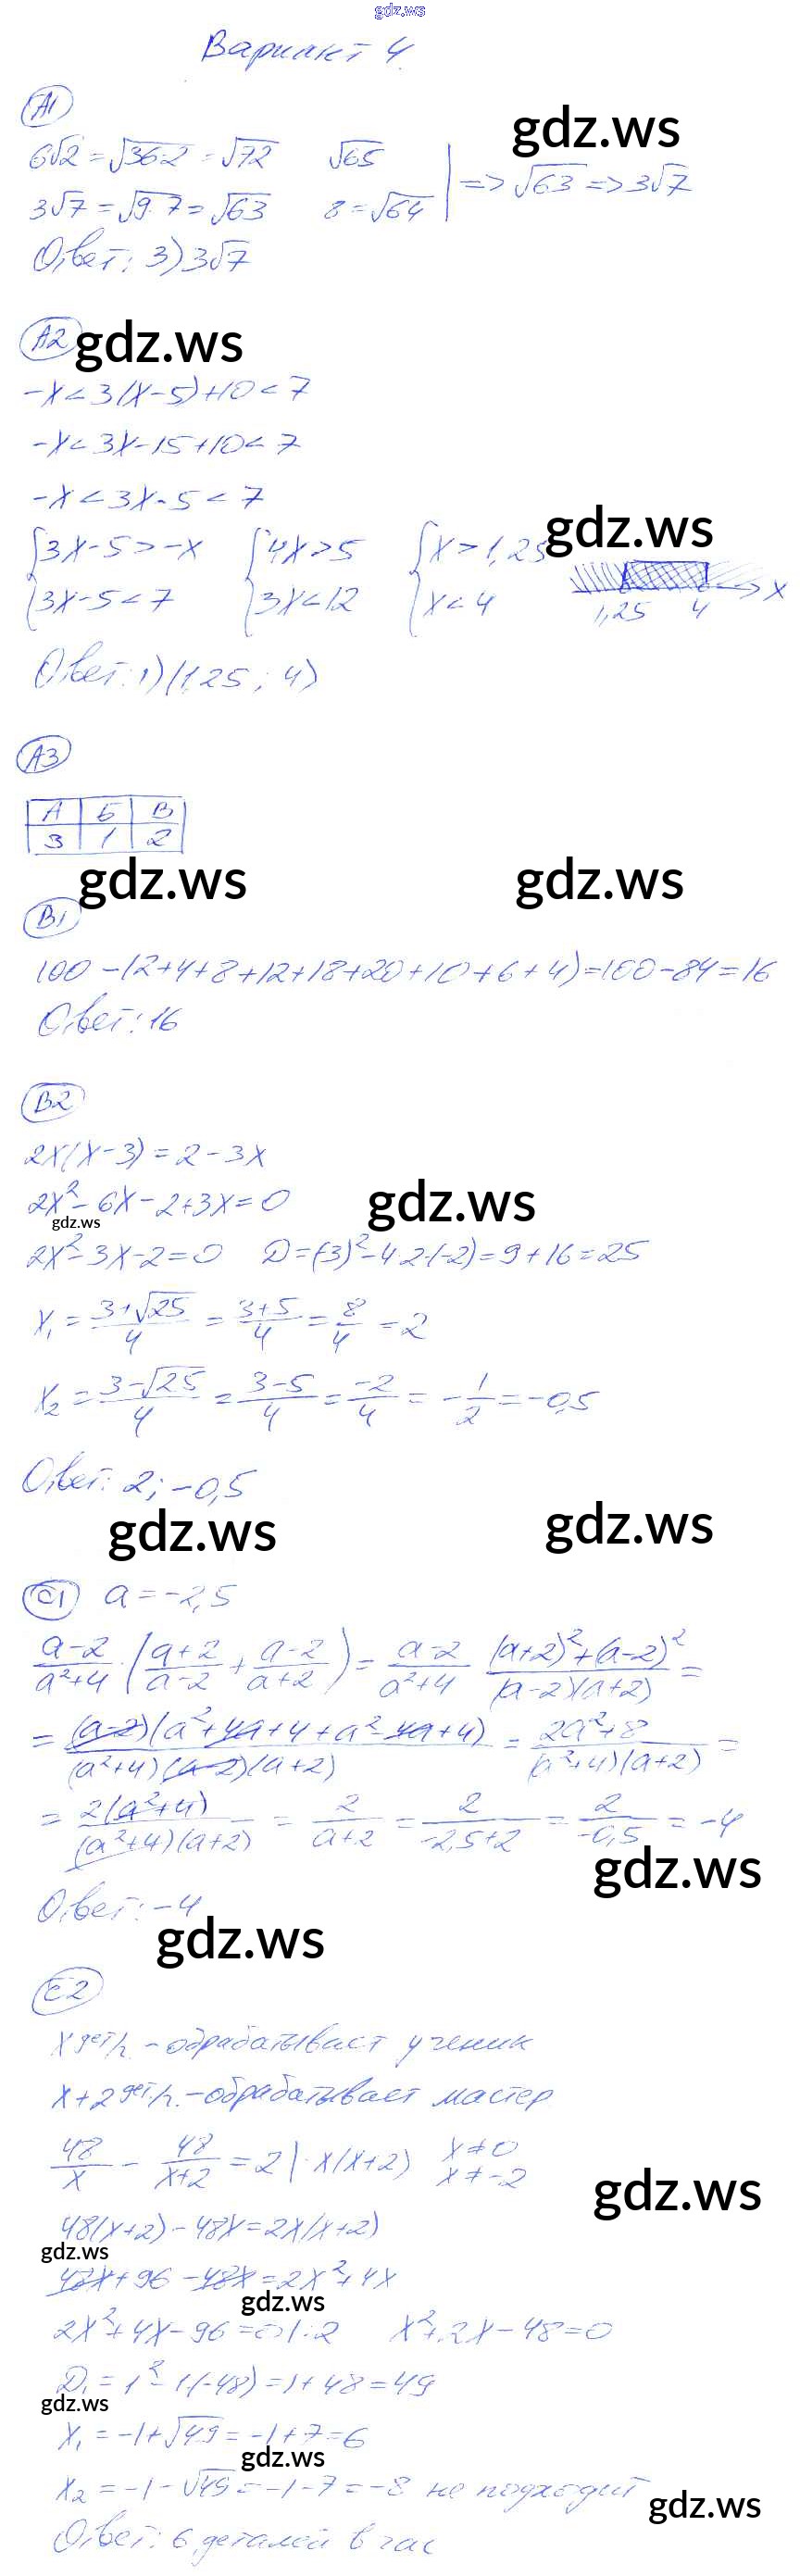 gdz.ws
Вариант 4
А1
gdz.ws
6√2 = √36·2 = √72 √65
3√7 = √9·7 = √63 8 = √64 | => √63 => 3√7
Ответ: 3) 3√7
А2 gdz.ws
-x < 3(x-5)+10 < 7
-x < 3x-15+10 < 7
-x < 3x-5 < 7
gdz.ws
{3x-5 > -x {4x > 5 {x > 1,25
{3x-5 < 7 {3x < 12 {x < 4 1,25 4 x
Ответ: 1) (1,25; 4)
А3
А Б В
3 1 2
gdz.ws gdz.ws
В1
100-(2+4+8+12+18+20+10+6+4)=100-84=16
Ответ: 16
В2
2x(x-3) = 2-3x
2x²-6x-2+3x=0
gdz.ws
gdz.ws
2x²-3x-2=0 D=(-3)²-4·2·(-2)=9+16=25
x₁ = (3+√25)/4 = (3+5)/4 = 8/4 = 2
x₂ = (3-√25)/4 = (3-5)/4 = -2/4 = -1/2 = -0,5
Ответ: 2; -0,5
gdz.ws gdz.ws
С1 a = -2,5
(a-2)/(a²+4) · ((a+2)/(a-2) + (a-2)/(a+2)) = (a-2)/(a²+4) · ((a+2)²+(a-2)²)/((a-2)(a+2)) =
= (a-2)(a²+4a+4+a²-4a+4)/((a²+4)(a-2)(a+2)) = (2a²+8)/((a²+4)(a+2)) =
= 2(a²+4)/((a²+4)(a+2)) = 2/(a+2) = 2/(-2,5+2) = 2/(-0,5) = -4
gdz.ws
Ответ: -4
gdz.ws
С2
x дет/ч. - обрабатывает ученик
x+2 дет/ч. - обрабатывает мастер
48/x - 48/(x+2) = 2 | · x(x+2) x ≠ 0
x ≠ -2
gdz.ws
48(x+2) - 48x = 2x(x+2)
gdz.ws
48x+96-48x = 2x²+4x
gdz.ws
2x²+4x-96=0 |:2 x²+2x-48=0
D₁ = 1²-1·(-48)=1+48=49
gdz.ws
x₁ = -1+√49 = -1+7=6
gdz.ws
x₂ = -1-√49 = -1-7=-8 не подходит
gdz.ws
Ответ: 6 деталей в час